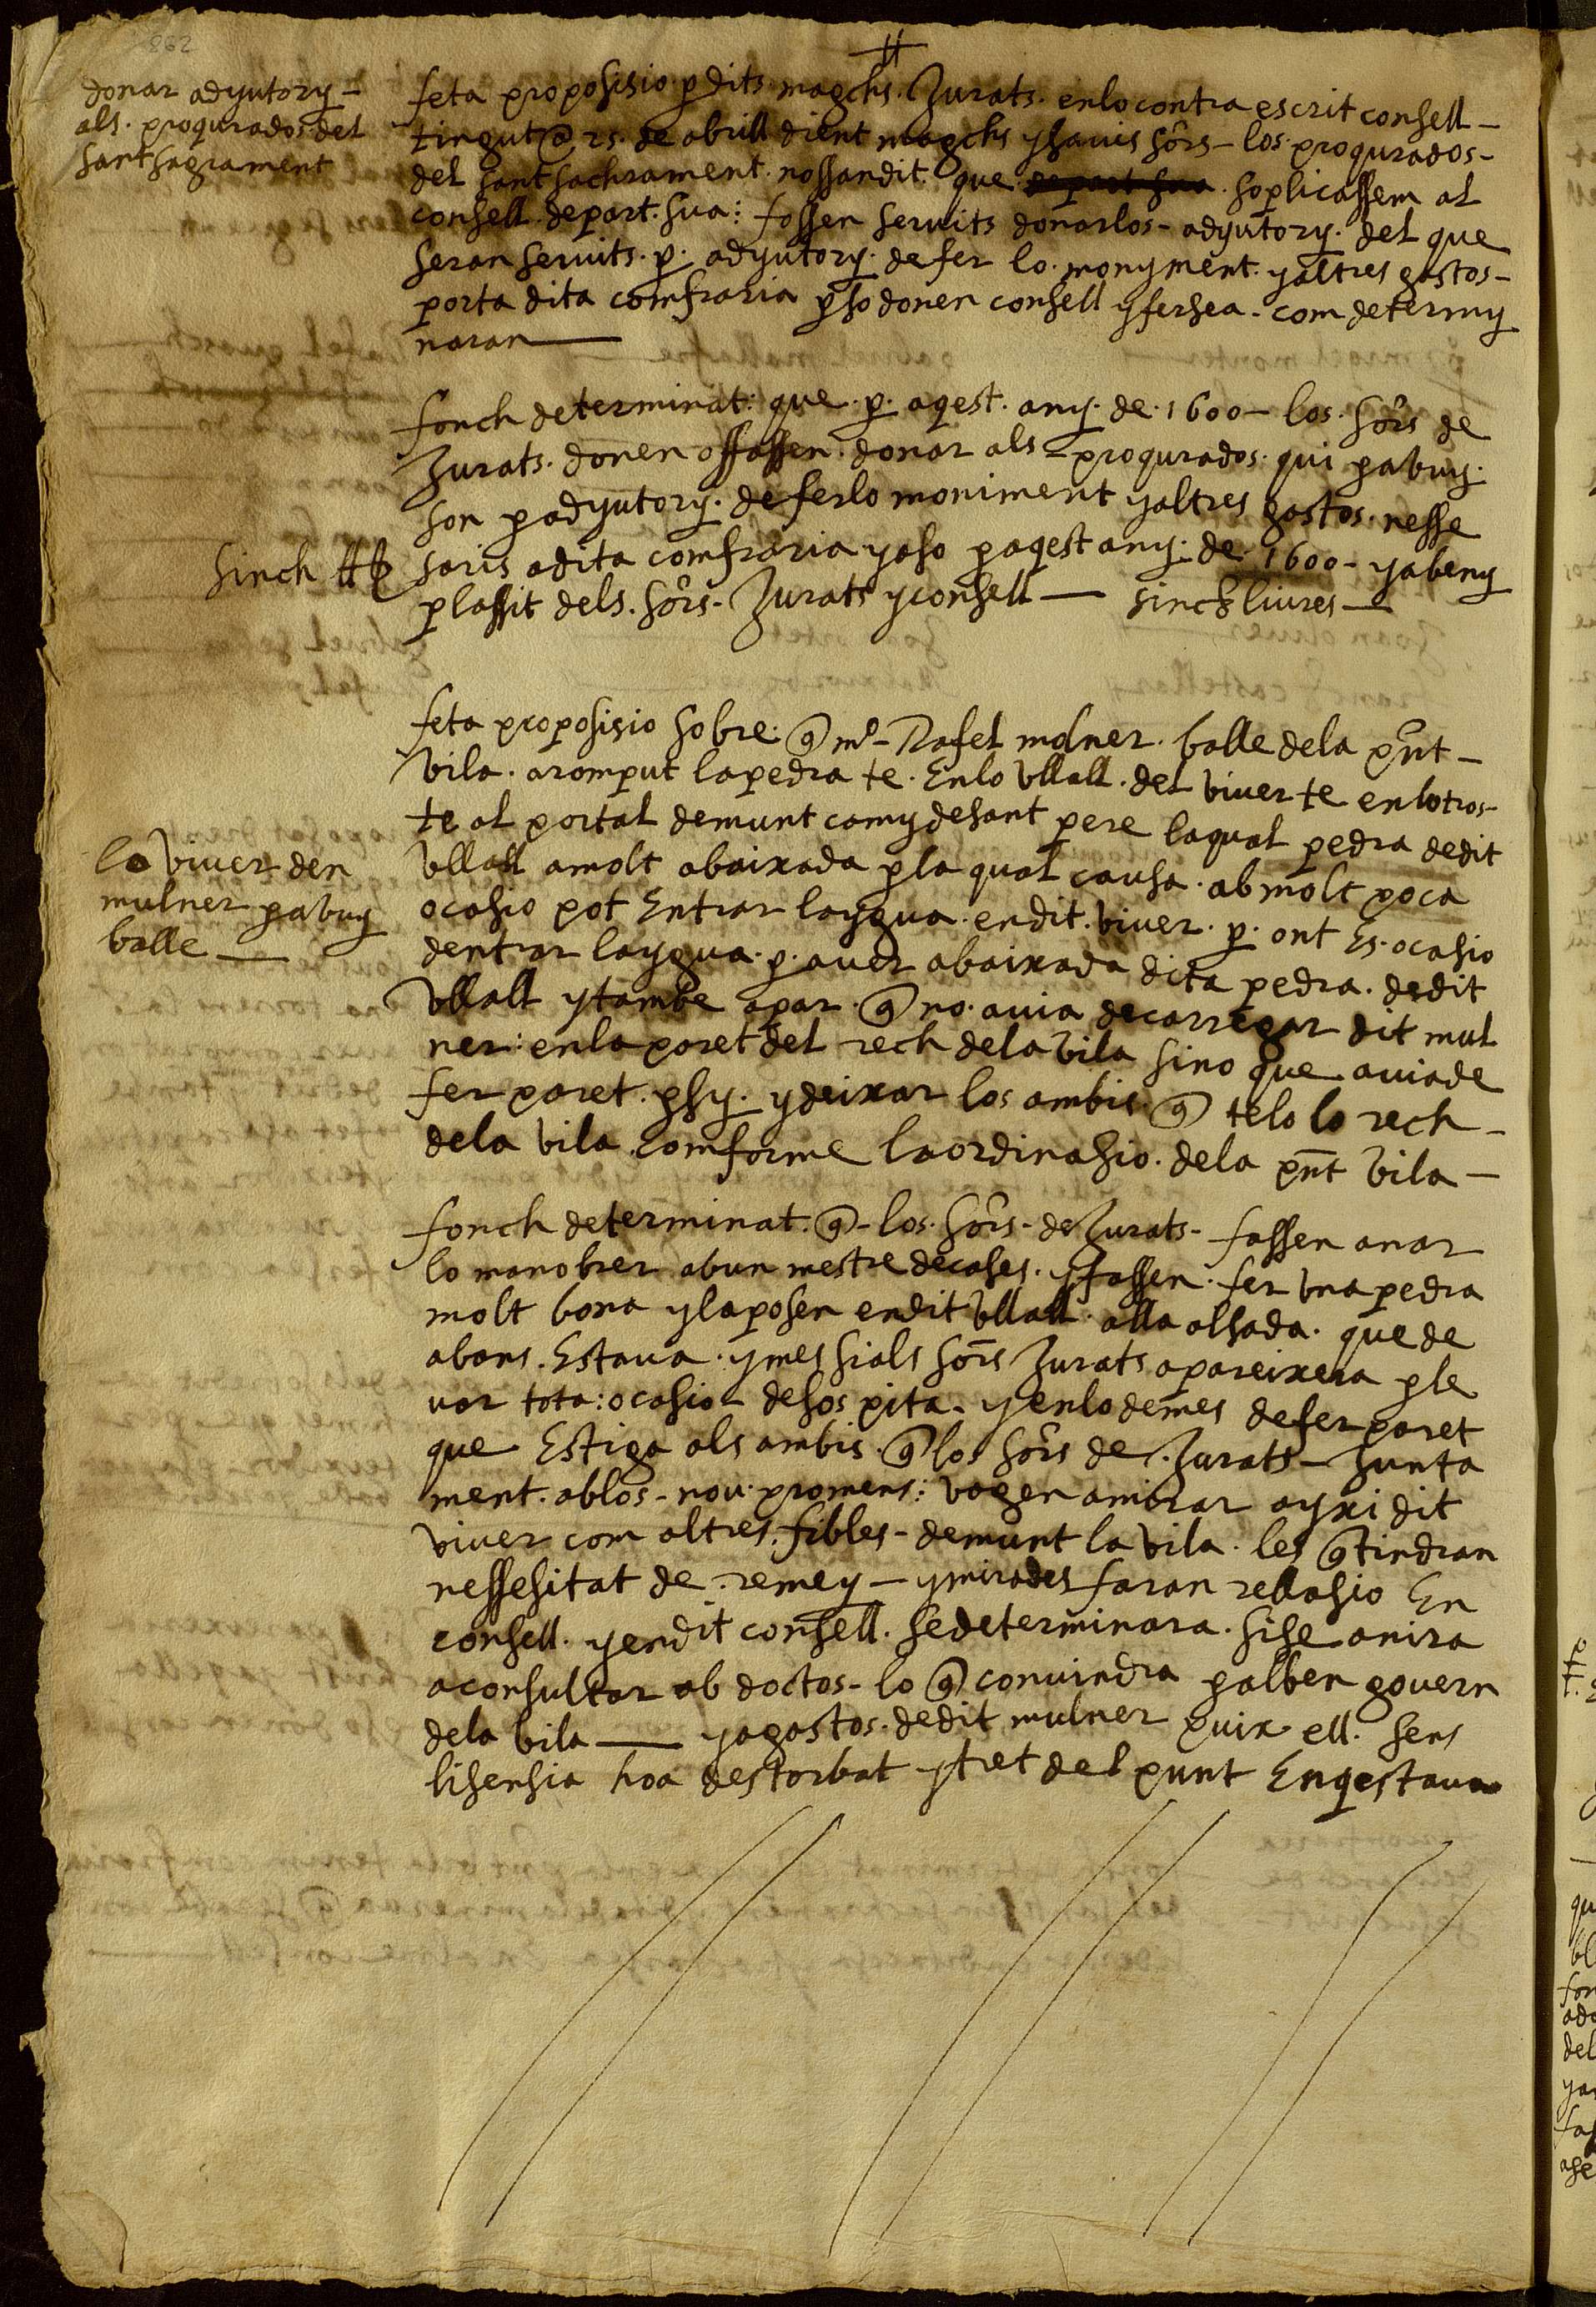 862
donar adyutory –
als. proqurados del
sant sagrament
feta proposisio p dits magchs. Jurats. en lo contra escrit consell –
tingut @ 25. de abrill dient magchs y savis sors – los proqurados –
del sant sachrament. nossandit. que de part sua. soplicassem al
consell. de part. sua: fossen servits donarlos – adyutory. del que
seran servits. p. adyutory. de fer lo. monyment. y altres gastos –
porta dita comfraria p so donen consell y fersea. com determy
naran —
fonch determinat: que. p. aqest. any. de. 1600 – los. sors de
Jurats. donen o fassen. donar als – proqurados. qui p abuy.
son p adyutory. de fer lo moniment y altres gastos. nesse
sinch ₶
saris a dita comfraria y aso p aqest any. de. 1600 – y a beny
plassit dels. sors. Jurats y consell — sinch liures —
feta proposisio sobre. q mº – Rafel molner. balle de la pnt –
vila. a romput la pedra te. En lo vllall. del viver te en lo tros –
te al portal demunt camy de sant pere la qual pedra de dit
lo viver den
mulner p abuy
balle —
vllall a molt abaixada p la qual causa. ab molt poca
ocasio pot Entrar laygua. en dit. viver. p. ont Es. ocasio
dentrar laygua. p. aver abaixada dita pedra. de dit
vllall y tambe apar. q no. avia de carregar dit mul
ner: en la paret del rech de la vila sino que avia de
fer paret. p sy. y deixar los ambis. q te lo lo rech –
de la vila. comforme la ordinasio. de la pnt vila –
fonch determinat. q – los. sors – de Jurats – fassen anar
lo manobrer ab un mestre de cases. y fassen. fer vna pedra
molt bona y la posen en dit vllall. alla alsada. que de
abans. Estava. y mes si als sors Jurats apareixera p le
var tota: ocasio de sospita. y en lo demes de fer paret
que Estiga als ambis. q los sors de. Jurats – Junta
ment. ab los – nou. promens: vagen a mirar ayxi dit
viver com altres. fibles – demunt la vila. les q tindran
nessesitat de. remey – y mirades faran rellasio En
consell. y en dit consell. se determinara. si se anira
a consultar ab doctos – lo q convindra p al ben govern
de la vila — y a gastos. de dit mulner puix ell. sens
lisensia hoa destorbat y tret del punt En q estava